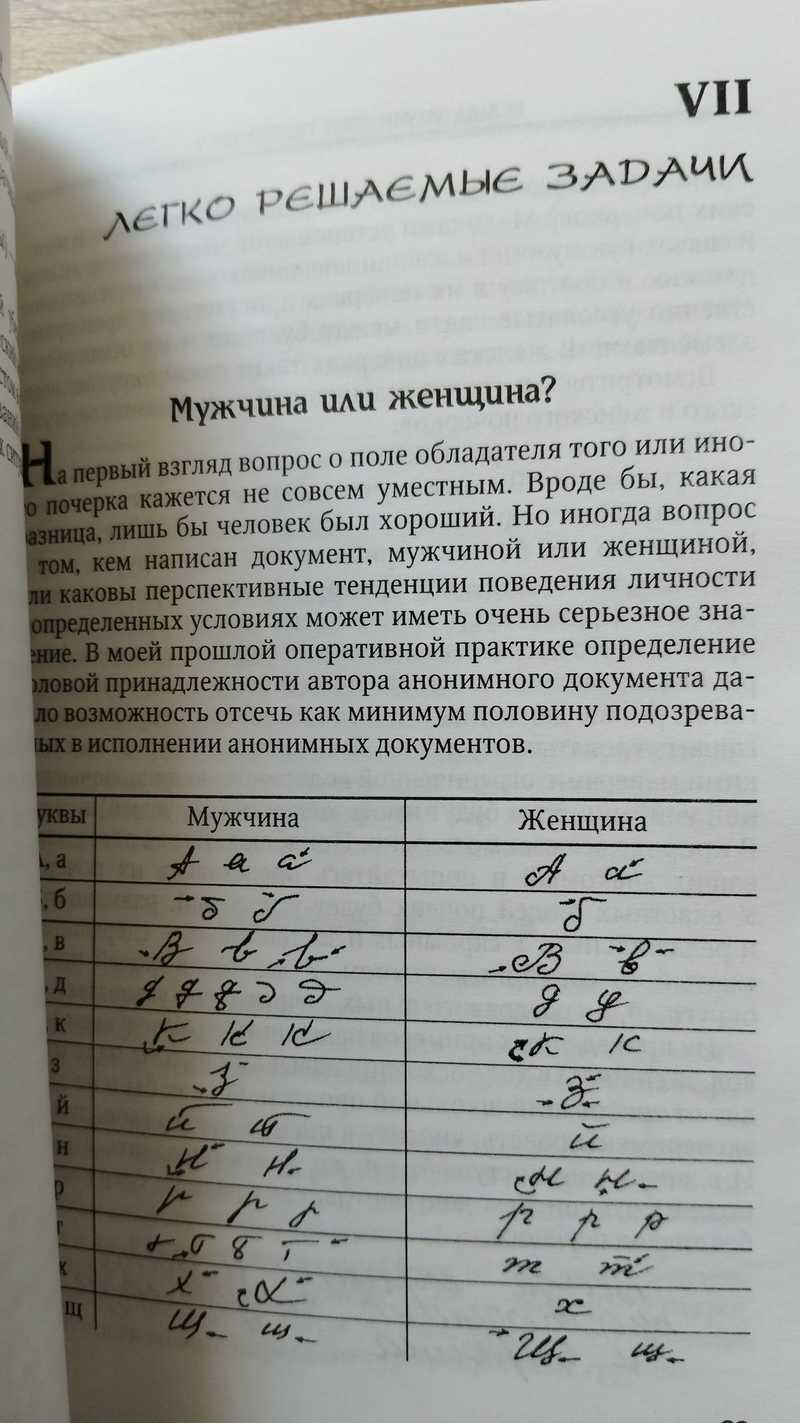 VII
ЛЕГКО РЕШАЕМЫЕ ЗАДАЧИ
Мужчина или женщина?
На первый взгляд вопрос о поле обладателя того или ино-
о почерка кажется не совсем уместным. Вроде бы, какая
азница, лишь бы человек был хороший. Но иногда вопрос
том, кем написан документ, мужчиной или женщиной,
ли каковы перспективные тенденции поведения личности
определенных условиях может иметь очень серьезное зна-
ение. В моей прошлой оперативной практике определение
оловой принадлежности автора анонимного документа да-
ло возможность отсечь как минимум половину подозрева-
ых в исполнении анонимных документов.
уквы Мужчина Женщина
, а А а а А а
, б б б б
, в В в в В в
, д д д д д д д д
, к к к к к к
з з З
й й й й
н н н н н
р р р р р р р
т т т т т т
х х х х
щ щ щ Щ щ